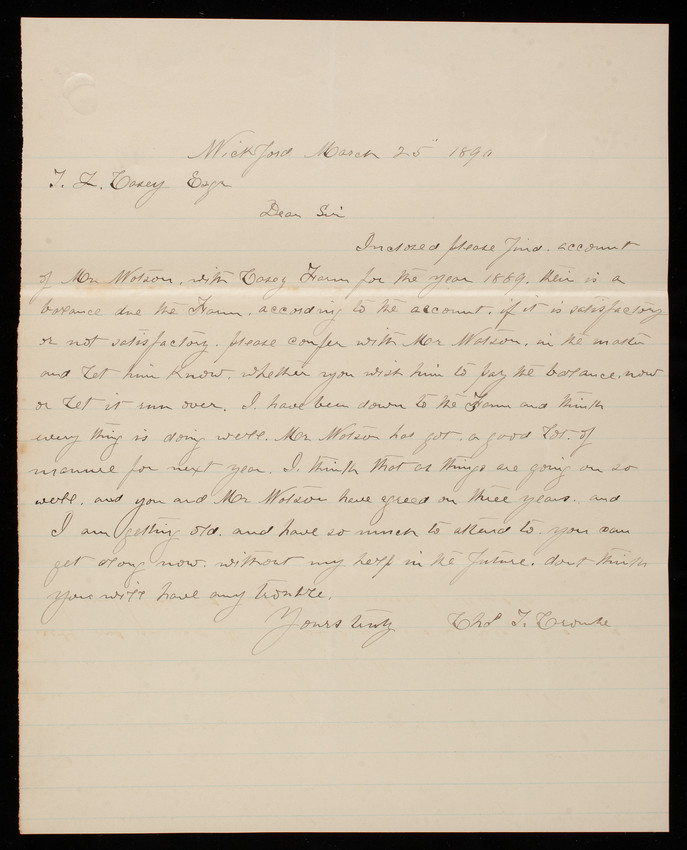 Wickford March 25" 1890
T. L. Casey Esqr
Dear Sir
Inclosed please find. account
of Mr Watson. with Casey Farm for the year 1889. their is a
balance due the Farm. according to the account. if it is satisfactory
or not satisfactory. please confer with Mr Watson. in the matter
and let him know. whether you wish him to pay the balance. now
or let it run over. I. have been down to the Farm and think
every thing is doing well. Mr Watson has got. a good lot. of
manure for next year. I. think that as things are going on so
well. and you and Mr Watson have agreed on three years. and
I am getting old. and have so much to attend to. you can
get along now. without my help in the future. dont think
you will have any trouble.
Yours truly Thos T.